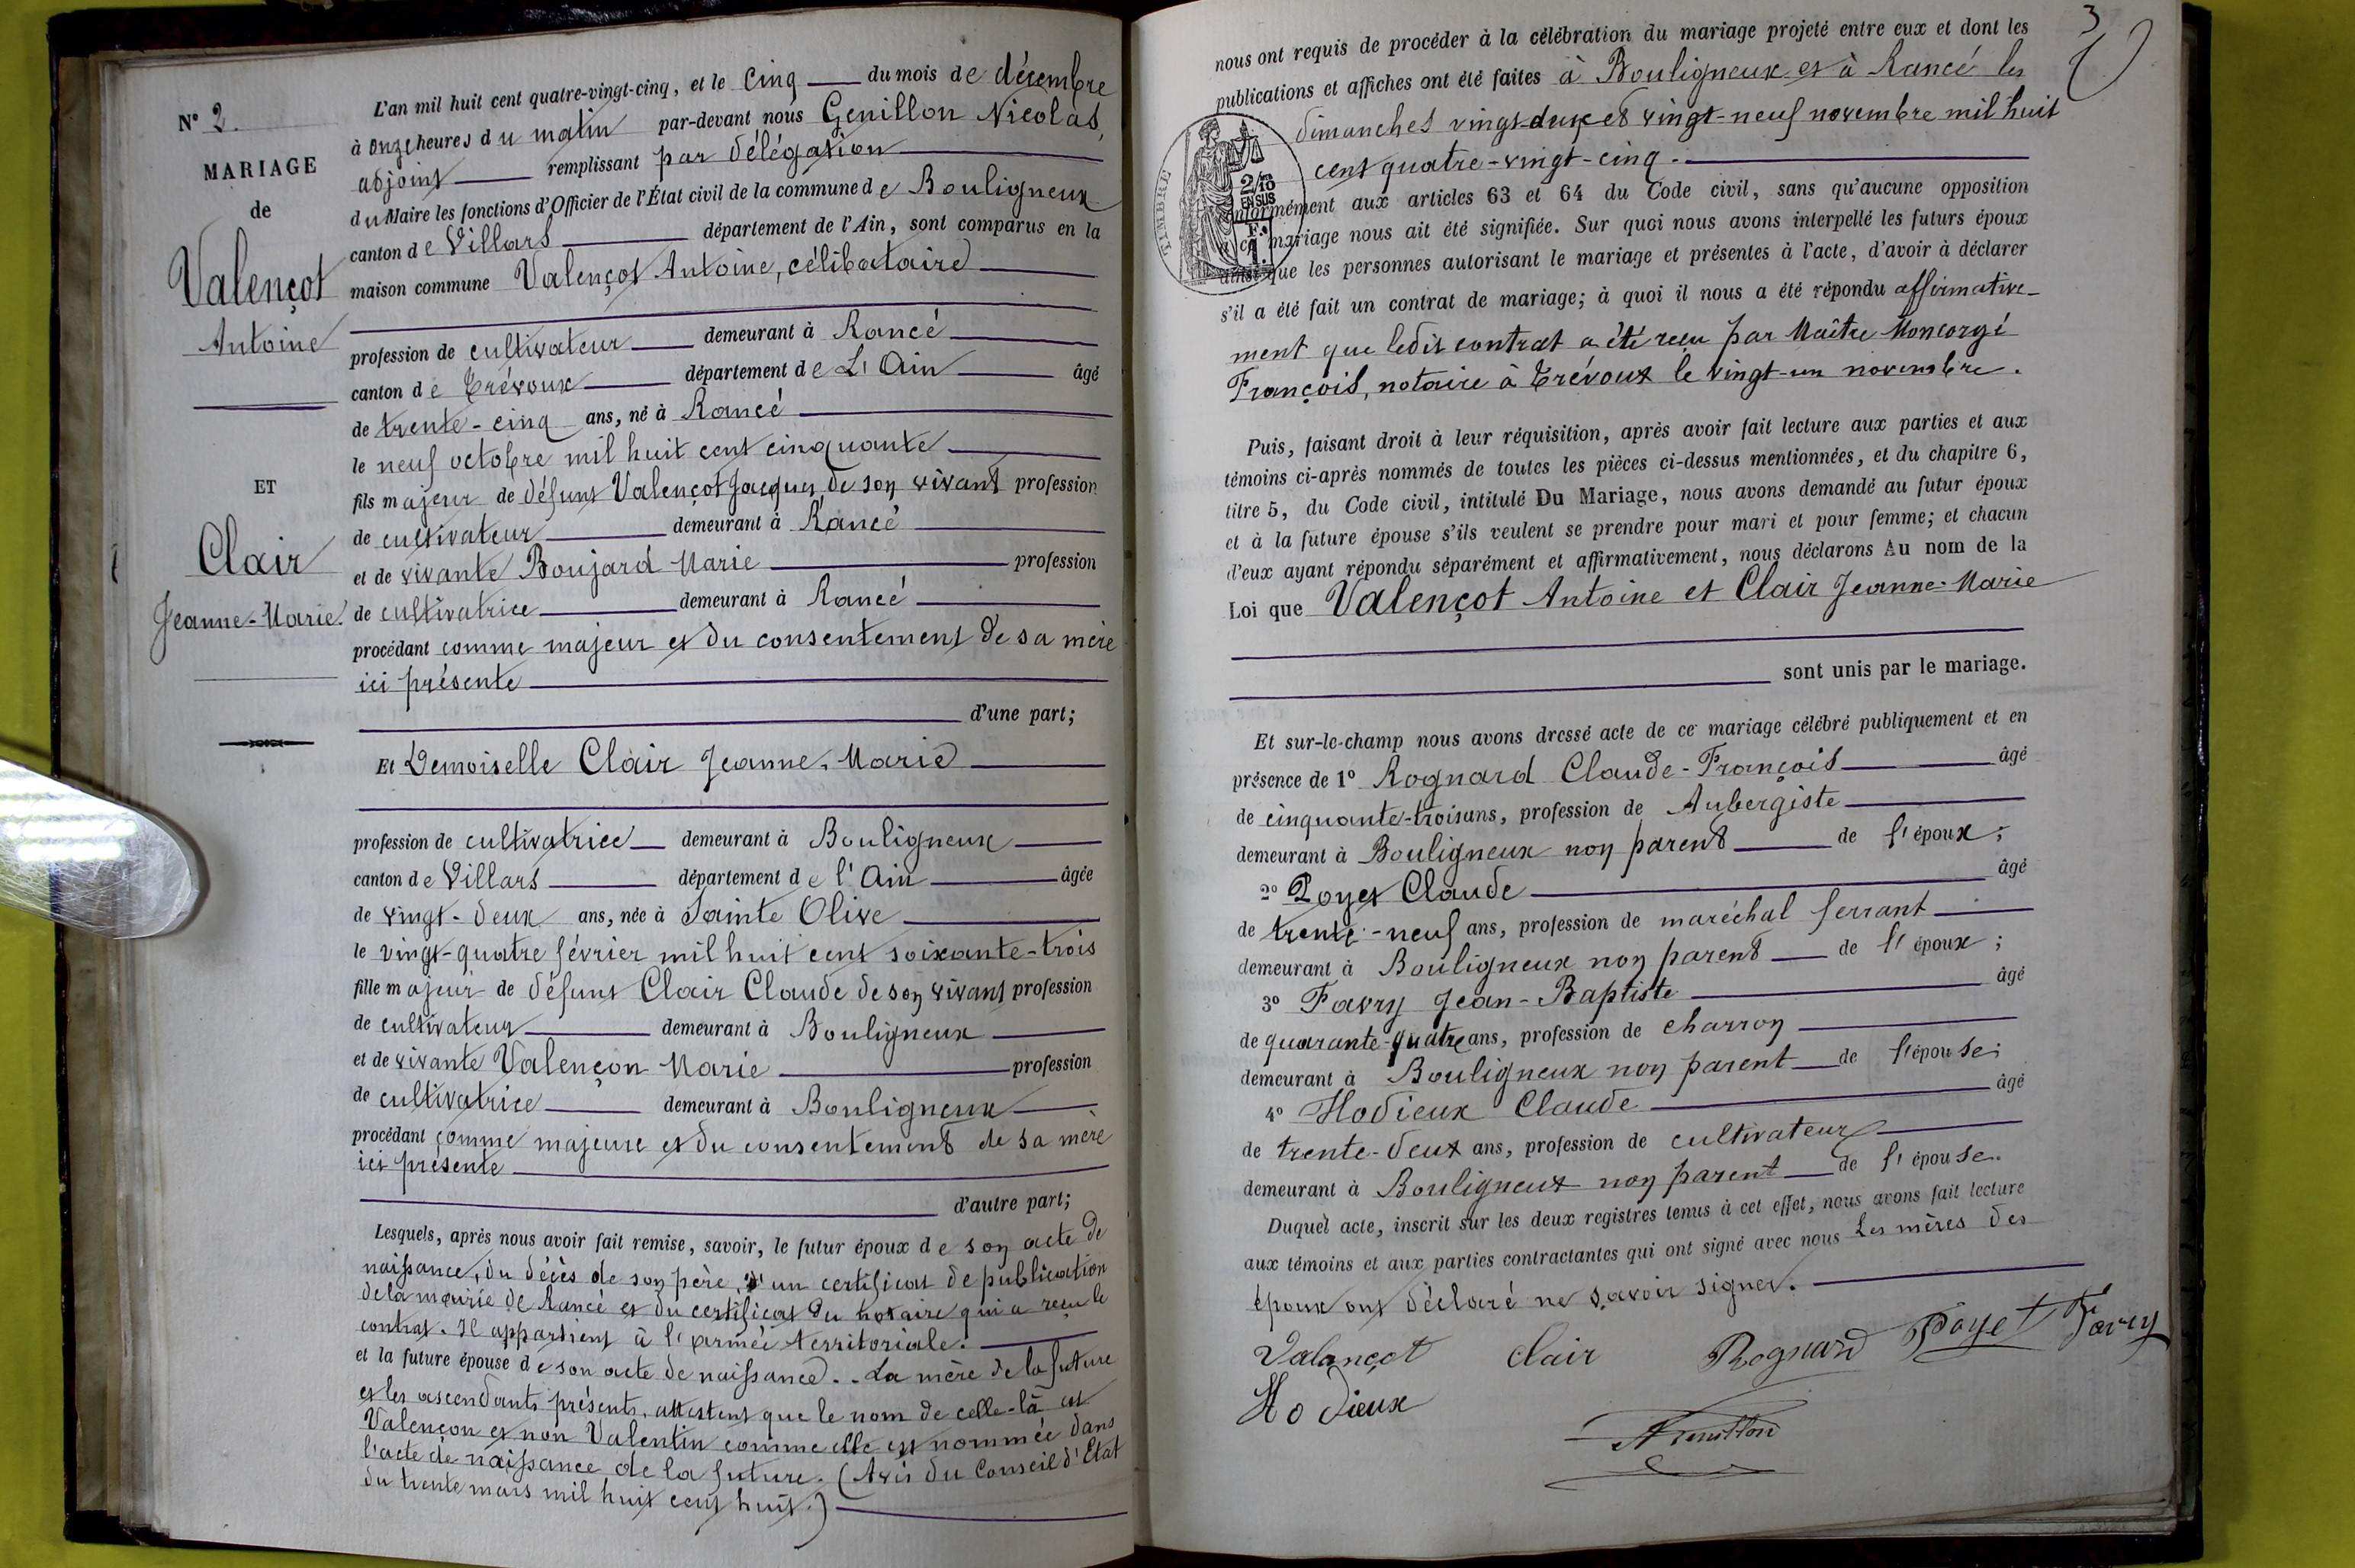 N° 2.
MARIAGE
de
Valençot
Antoine
ET
Clair
Jeanne-Marie.
L'an mil huit cent quatre-vingt-cinq, et le cinq du mois de décembre
à onze heures du matin par-devant nous Genillon Nicolas,
adjoint remplissant par délégation
du Maire les fonctions d'Officier de l'État civil de la commune de Bouligneux
canton de Villars département de l'Ain, sont comparus en la
maison commune Valençot Antoine, célibataire
profession de cultivateur demeurant à Rancé
canton de Trévoux département de L'Ain âgé
de trente-cinq ans, né à Rancé
le neuf octobre mil huit cent cinquante
fils majeur de défunt Valençot Jacques de son vivant profession
de cultivateur demeurant à Rancé
et de vivante Boujard Marie profession
de cultivatrice demeurant à Rancé
procédant comme majeur et du consentement de sa mère
ici présente
d'une part;
Et Demoiselle Clair Jeanne-Marie
profession de cultivatrice demeurant à Bouligneux
canton de Villars département de l'Ain âgée
de vingt-deux ans, née à Sainte Olive
le vingt-quatre février mil huit cent soixante-trois
fille majeur de défunt Clair Claude de son vivant profession
de cultivateur demeurant à Bouligneux
et de vivante Valençon Marie profession
de cultivatrice demeurant à Bouligneux
procédant comme majeure et du consentement de sa mère
ici présente
d'autre part;
Lesquels, après nous avoir fait remise, savoir, le futur époux de son acte de
naissance, du décès de son père, d'un certificat de publication
de la mairie de Rancé et du certificat du notaire qui a reçu le
contrat. Il appartient à l'armée territoriale.
et la future épouse de son acte de naissance. - La mère de la future
et les ascendants présents, attestent que le nom de celle-là est
Valençon et non Valentin comme elle est nommée dans
l'acte de naissance de la future. (Avis du Conseil d'Etat
du trente mars mil huit cent huit.)
3
nous ont requis de procéder à la célébration du mariage projeté entre eux et dont les
publications et affiches ont été faites à Bouligneux et à Rancé les
dimanches vingt-deux et vingt-neuf novembre mil huit
cent quatre-vingt-cinq.
TIMBRE
2/10
EN SUS
F.
1.
conformément aux articles 63 et 64 du Code civil, sans qu'aucune opposition
à ce mariage nous ait été signifiée. Sur quoi nous avons interpellé les futurs époux
ainsi que les personnes autorisant le mariage et présentes à l'acte, d'avoir à déclarer
s'il a été fait un contrat de mariage; à quoi il nous a été répondu affirmative-
ment que ledit contrat a été reçu par Maître Moncorgé
François, notaire à Trévoux le vingt-un novembre.
Puis, faisant droit à leur réquisition, après avoir fait lecture aux parties et aux
témoins ci-après nommés de toutes les pièces ci-dessus mentionnées, et du chapitre 6,
titre 5, du Code civil, intitulé Du Mariage, nous avons demandé au futur époux
et à la future épouse s'ils veulent se prendre pour mari et pour femme; et chacun
d'eux ayant répondu séparément et affirmativement, nous déclarons Au nom de la
Loi que Valençot Antoine et Clair Jeanne-Marie
sont unis par le mariage.
Et sur-le-champ nous avons dressé acte de ce mariage célébré publiquement et en
présence de 1° Rognard Claude-François âgé
de cinquante-trois ans, profession de Aubergiste
demeurant à Bouligneux non parent de l'époux;
2° Poyet Claude âgé
de trente-neuf ans, profession de maréchal ferrant
demeurant à Bouligneux non parent de l'époux;
3° Favry Jean-Baptiste âgé
de quarante-quatre ans, profession de charron
demeurant à Bouligneux non parent de l'épouse;
4° Hodieux Claude âgé
de trente-deux ans, profession de cultivateur
demeurant à Bouligneux non parent de l'épouse.
Duquel acte, inscrit sur les deux registres tenus à cet effet, nous avons fait lecture
aux témoins et aux parties contractantes qui ont signé avec nous Les mères des
époux ont déclaré ne savoir signer.
Valençot Clair Rognard Poyet Favry
Hodieux
Genillon